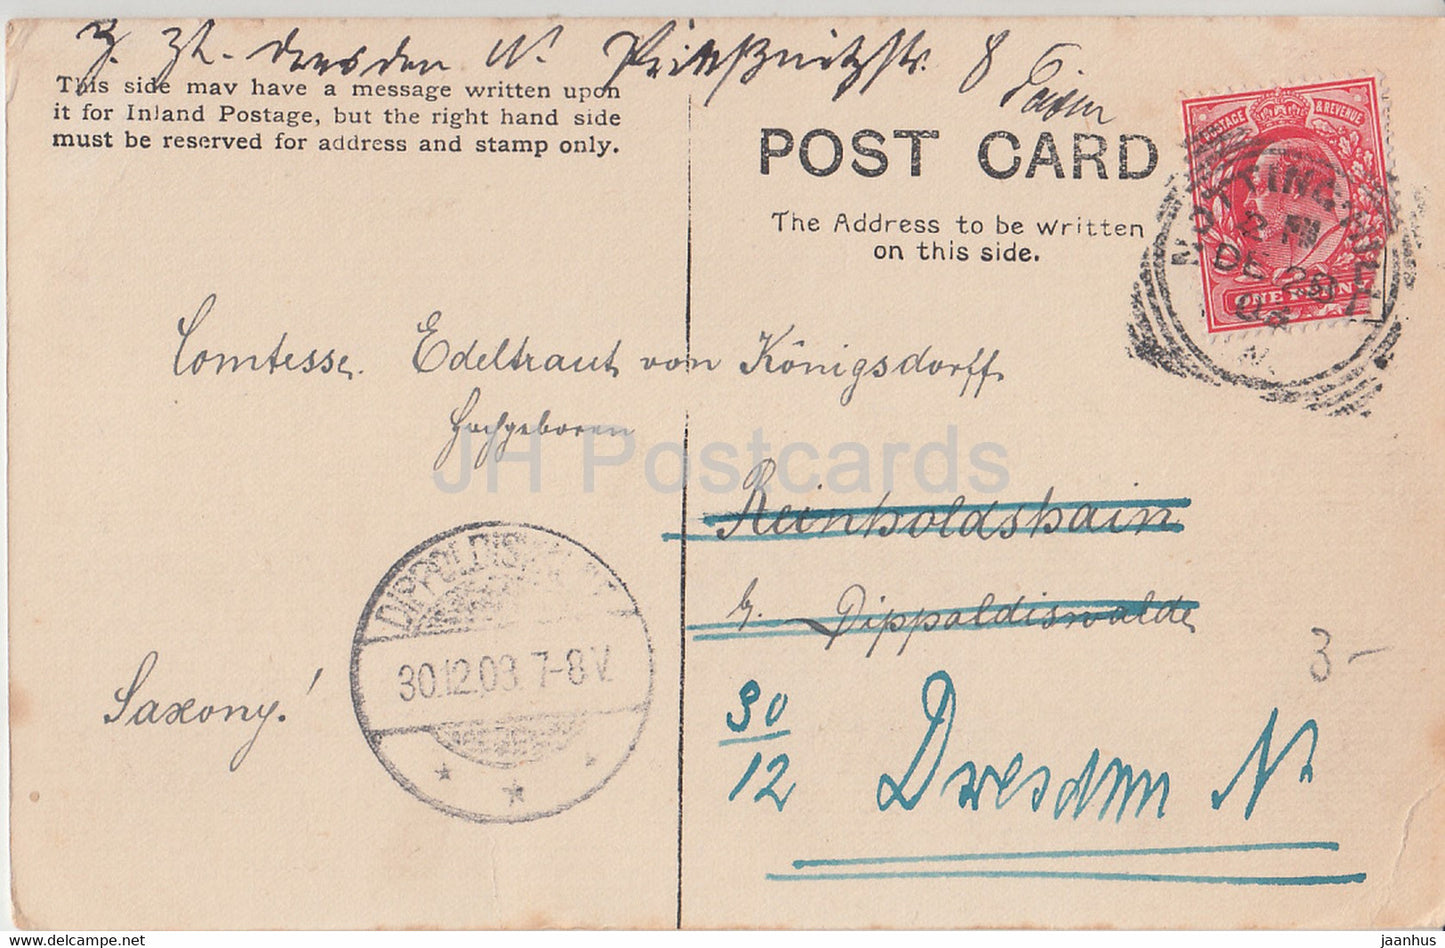 z. Zt. Dresden N. Prießnitzstr. 8
This side may have a message written upon
it for Inland Postage, but the right hand side
must be reserved for address and stamp only.
POST CARD
The Address to be written
on this side.
POSTAGE & REVENUE
ONE PENNY
NOTTING-HILL
DE 28
N.
Comtesse Edeltraut von Königsdorff
Hochgeboren
JH Postcards
Reinholdshain
b. Dippoldiswalde
Saxony!
DIPPOLDISWALDE
30.12.03. 7-8 V.
30
12
Dresden N.
3-
www.delcampe.net
jaanhus